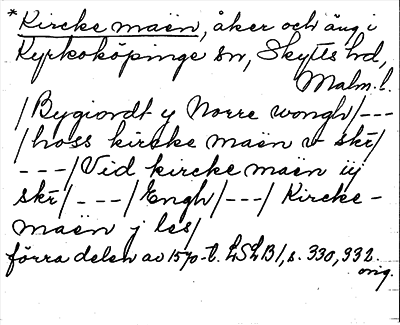 * Kircke maen, åker och äng i
Kyrkoköpinge sn, Skytts hd,
Malm. l.
/Bygiordt y Norre wongh/---
/hoss kircke maen v skr/
---/Vid kircke maen iij
skr/---/Engh/---/Kircke-
maen j les/
förra delen av 1570-t. LSLB1, s. 330, 932.
orig.